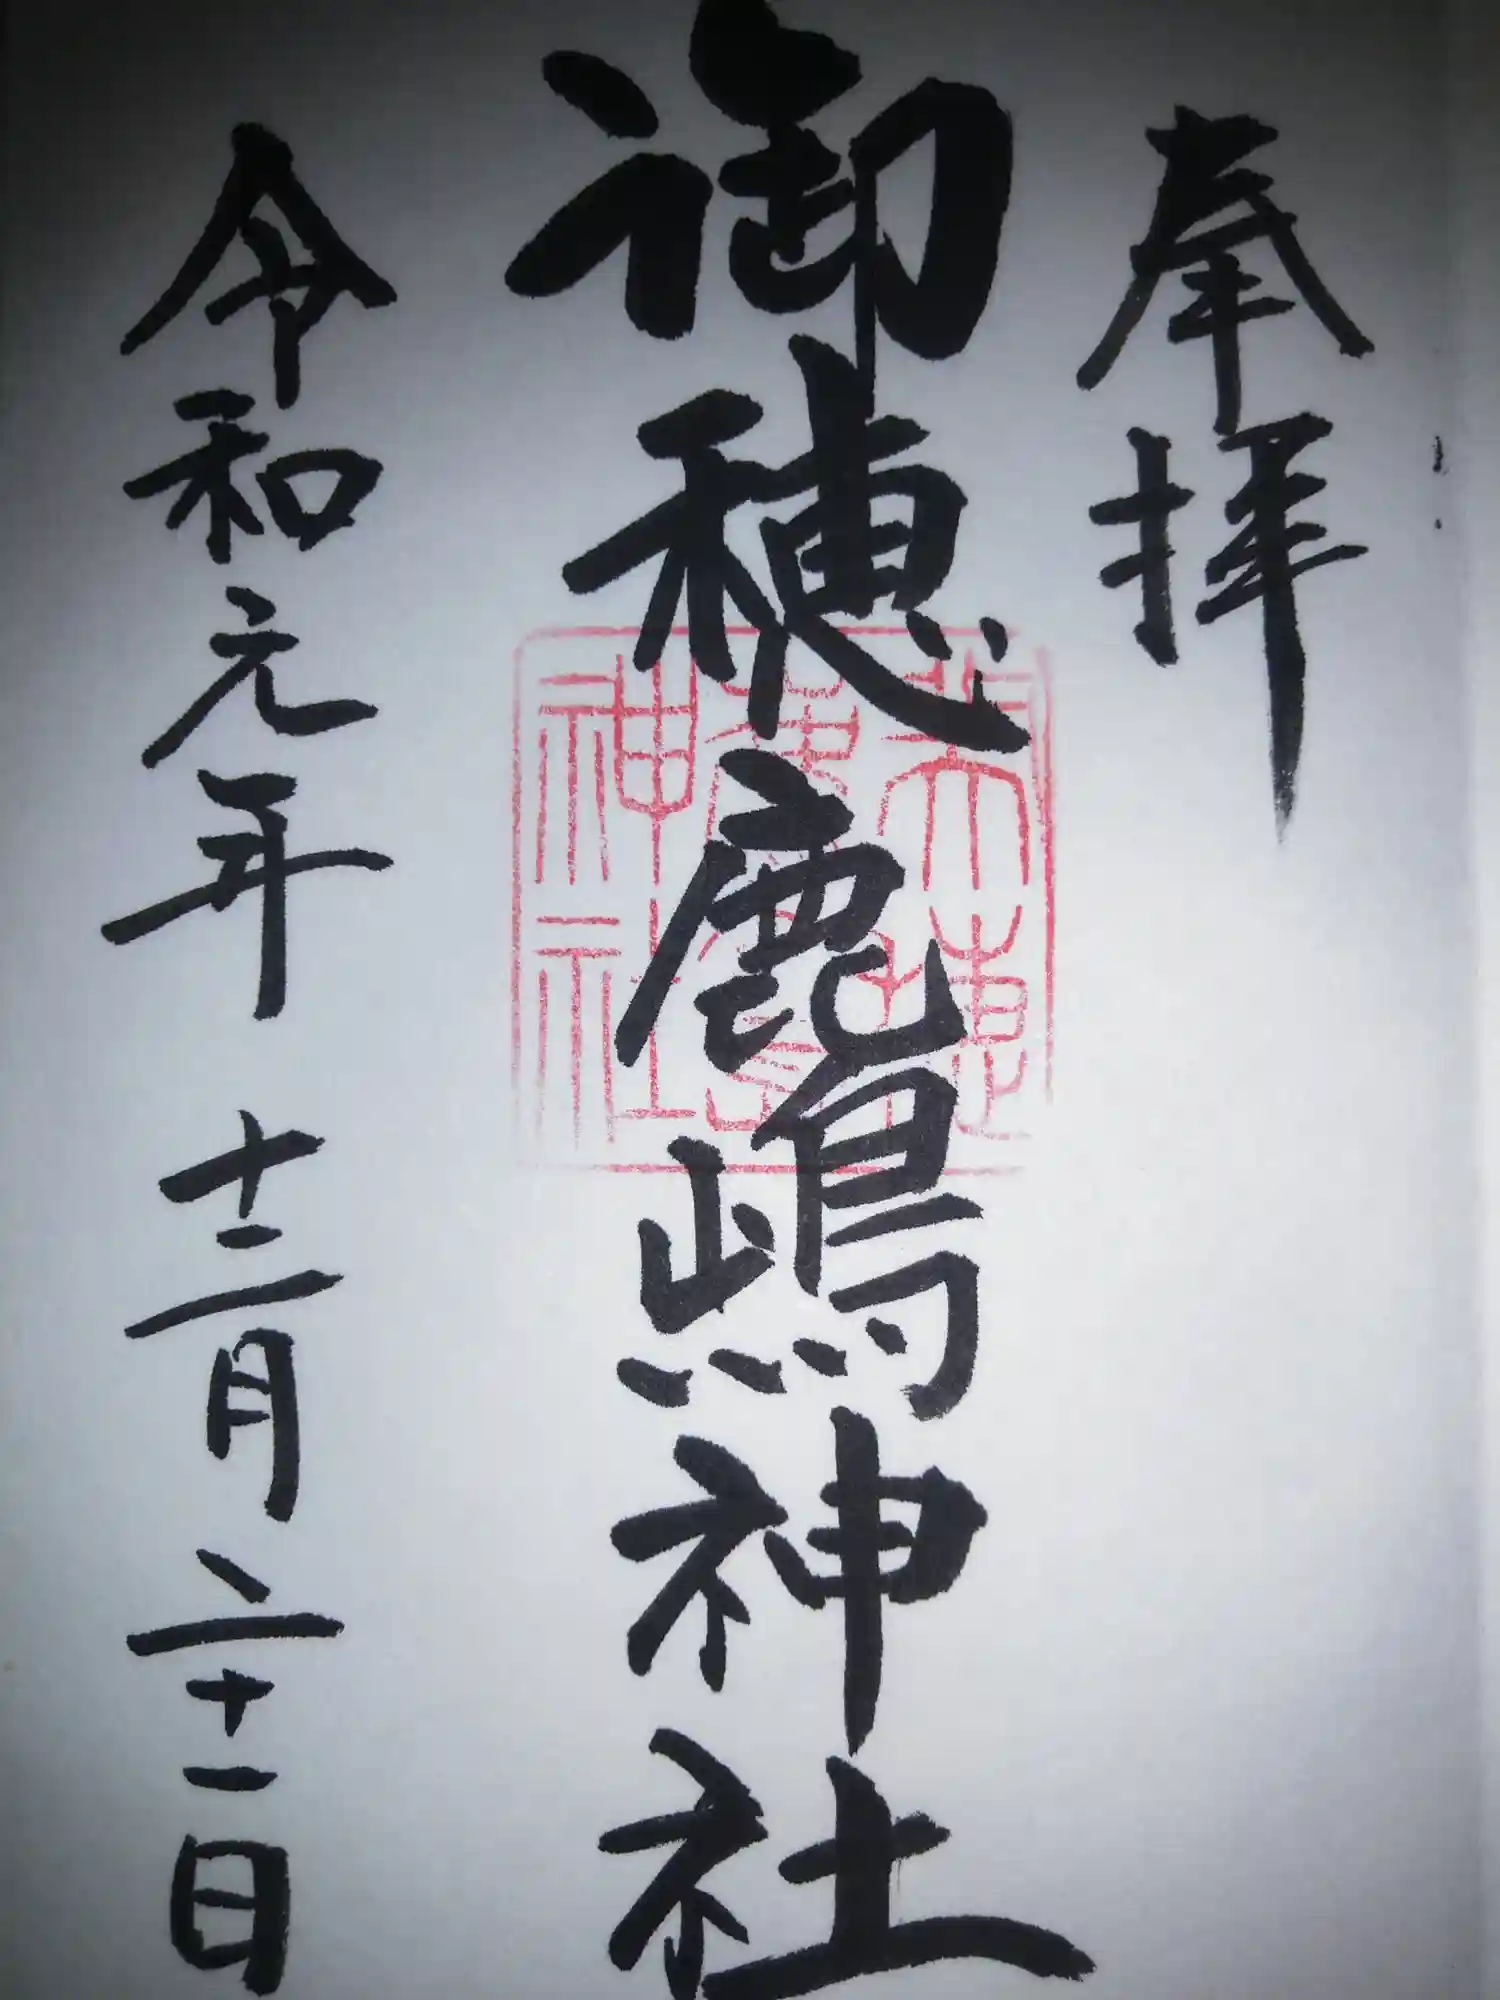 奉拝
御穂鹿嶋神社
令和元年 十二月二十一日
神社